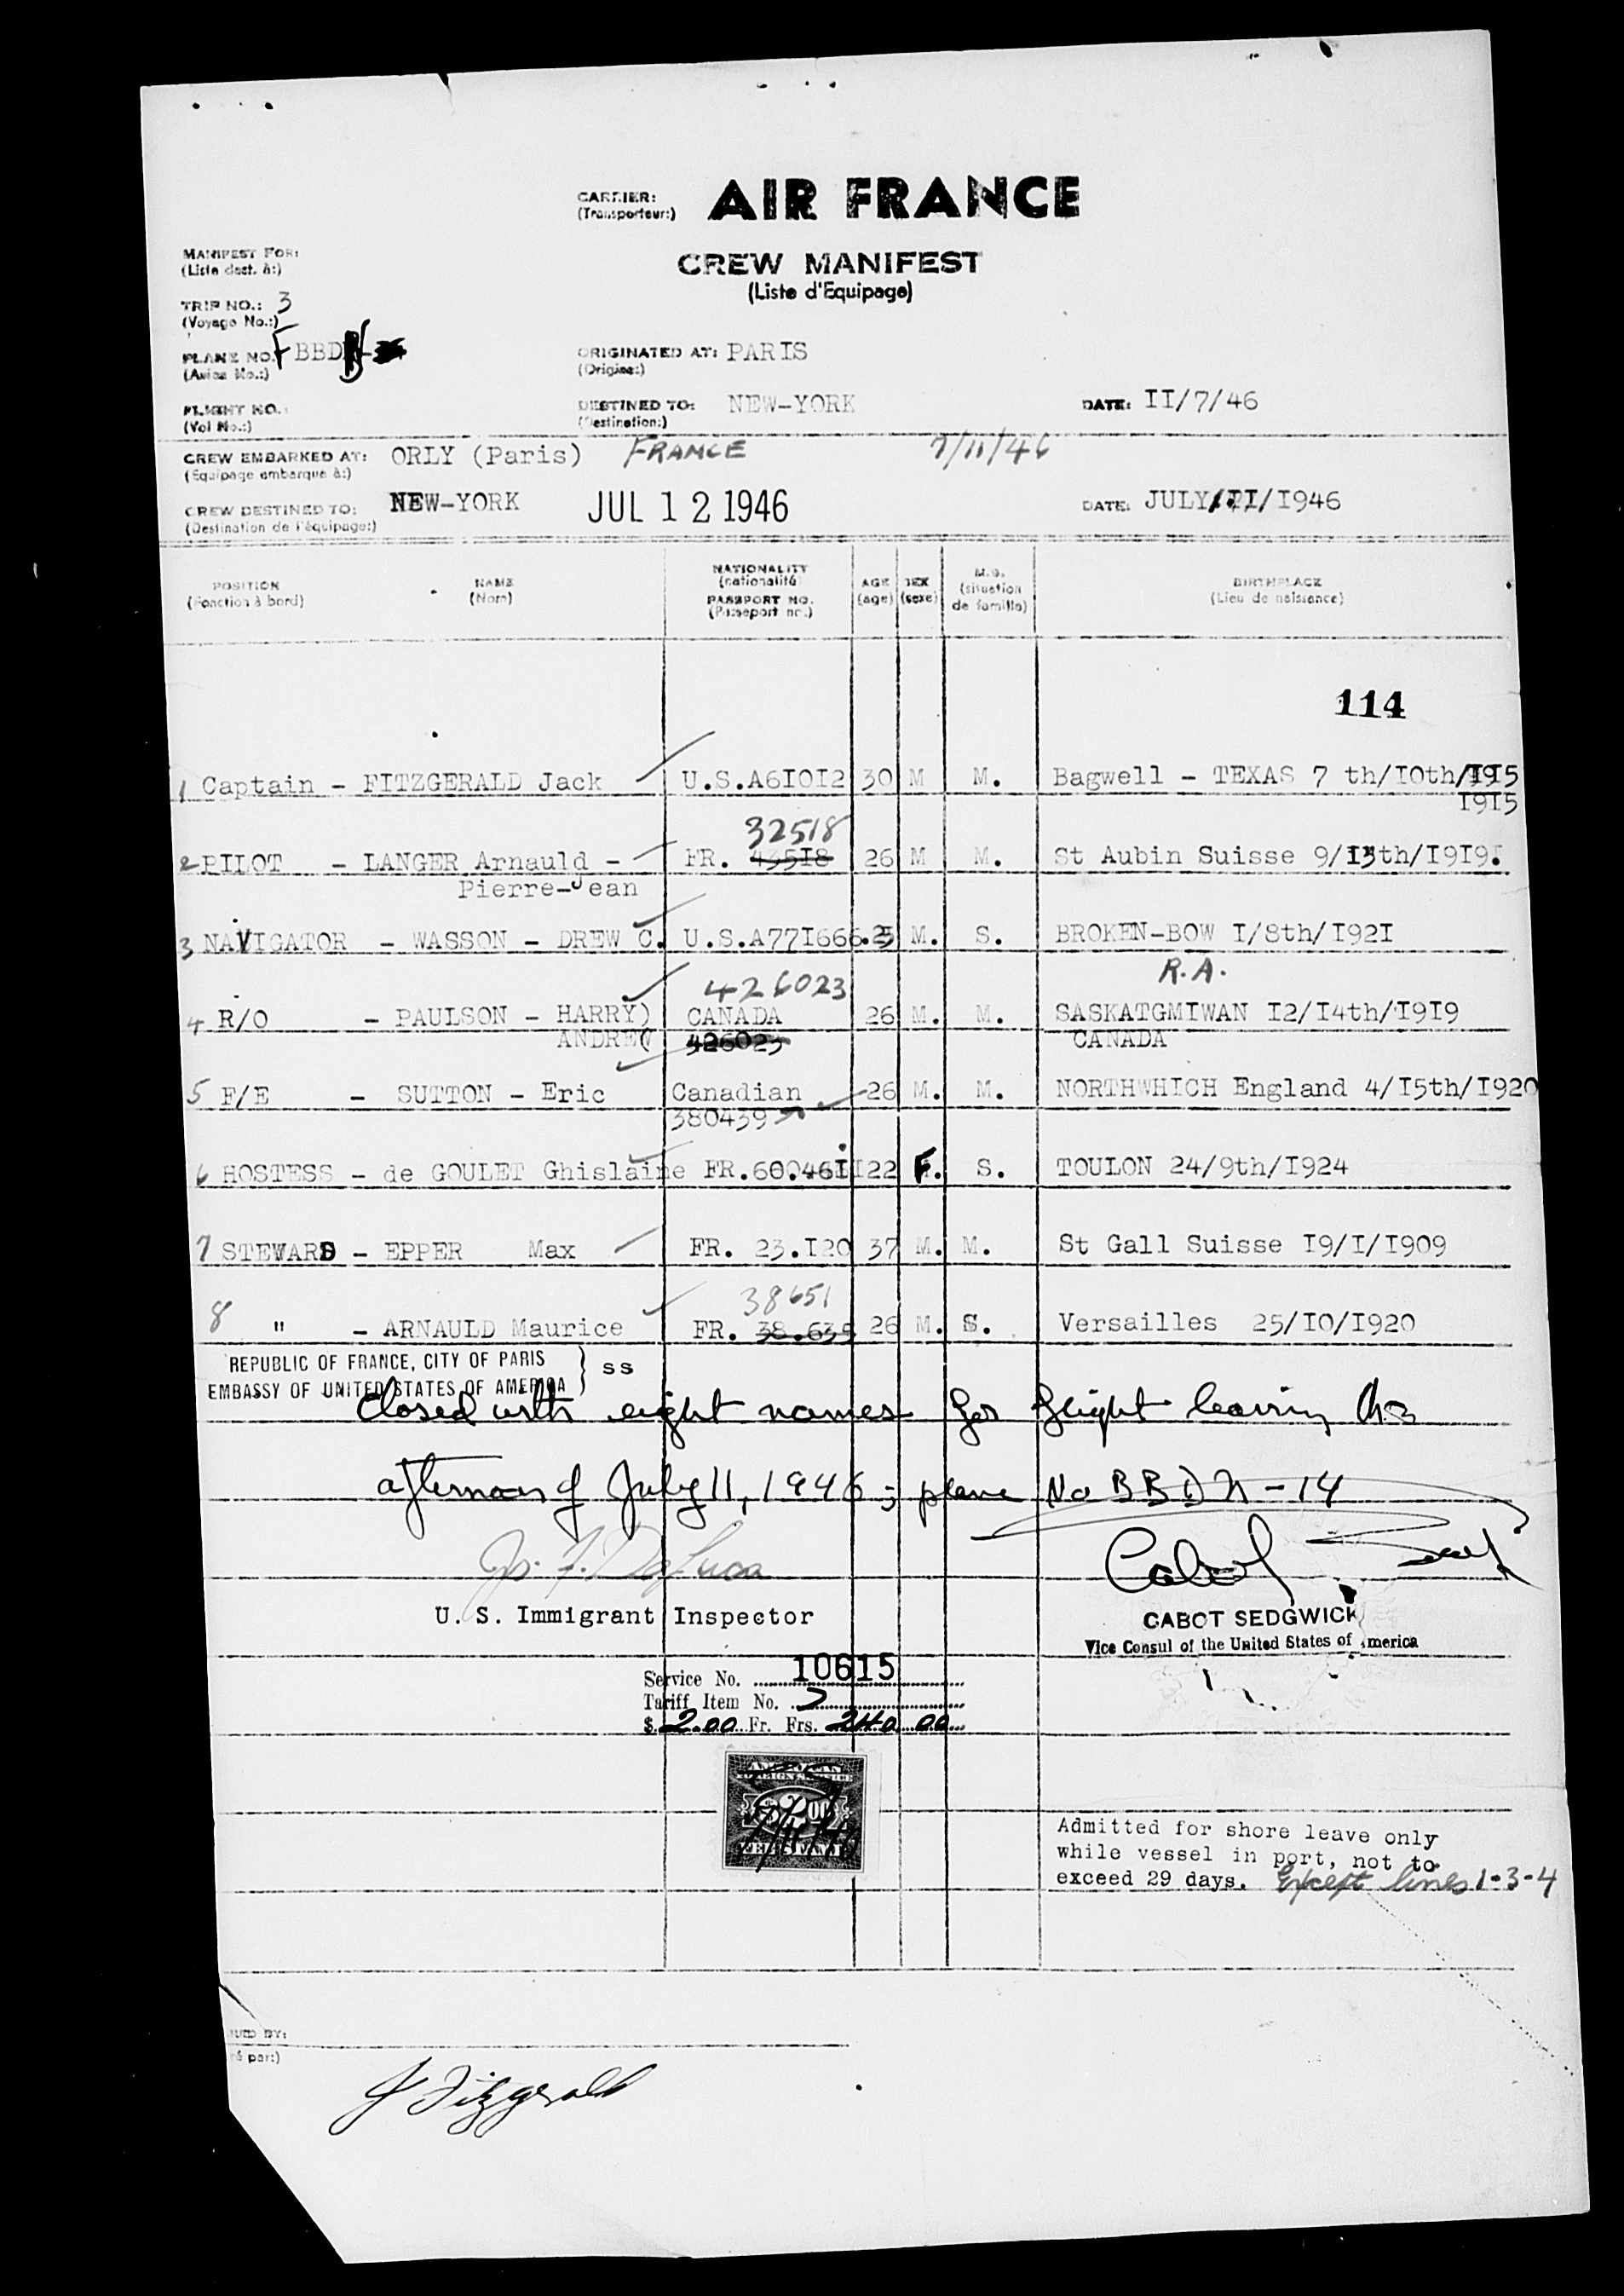 CARRIER: AIR FRANCE
(Transporteur:)
MANIFEST FOR:
(Liste dest. à:)
CREW MANIFEST
(Liste d'Equipage)
TRIP NO.: 3
(Voyage No.:)
PLANE NO. F BBD
(Avion No.:)
ORIGINATED AT: PARIS
(Origine:)
FLIGHT NO.:
(Vol No.:)
DESTINED TO: NEW-YORK
(Destination:)
DATE: II/7/46
CREW EMBARKED AT: ORLY (Paris) FRANCE 7/11/46
(Equipage embarque à:)
CREW DESTINED TO: NEW-YORK JUL 12 1946 DATE: JULY/II/I946
(Destination de l'équipage:)
POSITION
(Fonction à bord)
NAME
(Nom)
NATIONALITY
(nationalité)
PASSPORT NO.
(Passeport no.)
AGE
(age)
SEX
(sexe)
M.S.
(situation
de famille)
BIRTHPLACE
(Lieu de naissance)
114
1 Captain - FITZGERALD Jack U.S.A6I0I2 30 M M. Bagwell - TEXAS 7 th/I0th/I9I5
I9I5
32518
2 PILOT - LANGER Arnauld - FR. 43518 26 M M. St Aubin Suisse 9/I3th/I9I9.
Pierre-Jean
3 NAVIGATOR - WASSON - DREW C. U.S.A77I666.25 M. S. BROKEN-BOW I/8th/I92I
426023 R.A.
4 R/O - PAULSON - HARRY) CANADA 26 M. M. SASKATGMIWAN I2/I4th/I9I9
ANDREW 426023 CANADA
5 F/E - SUTTON - Eric Canadian 26 M. M. NORTHWHICH England 4/I5th/I920
380439
6 HOSTESS - de GOULET Ghislaine FR.60.46I 22 F. S. TOULON 24/9th/I924
7 STEWARD - EPPER Max FR. 23.I20 37 M. M. St Gall Suisse I9/I/I909
38651
8 " - ARNAULD Maurice FR. 38.635 26 M. S. Versailles 25/I0/I920
REPUBLIC OF FRANCE, CITY OF PARIS
EMBASSY OF UNITED STATES OF AMERICA } SS
Closed with eight names for flight leaving this
afternoon of July 11, 1946; plane No BBDN-14
U. S. Immigrant Inspector
CABOT SEDGWICK
Vice Consul of the United States of America
Service No. 10615
Tariff Item No. 7
$ 2.00 Fr. Frs. 240.00
AMERICAN
FOREIGN SERVICE
$2.00
FEE STAMP
Admitted for shore leave only
while vessel in port, not to
exceed 29 days. Except lines 1-3-4
J Fitzgerald